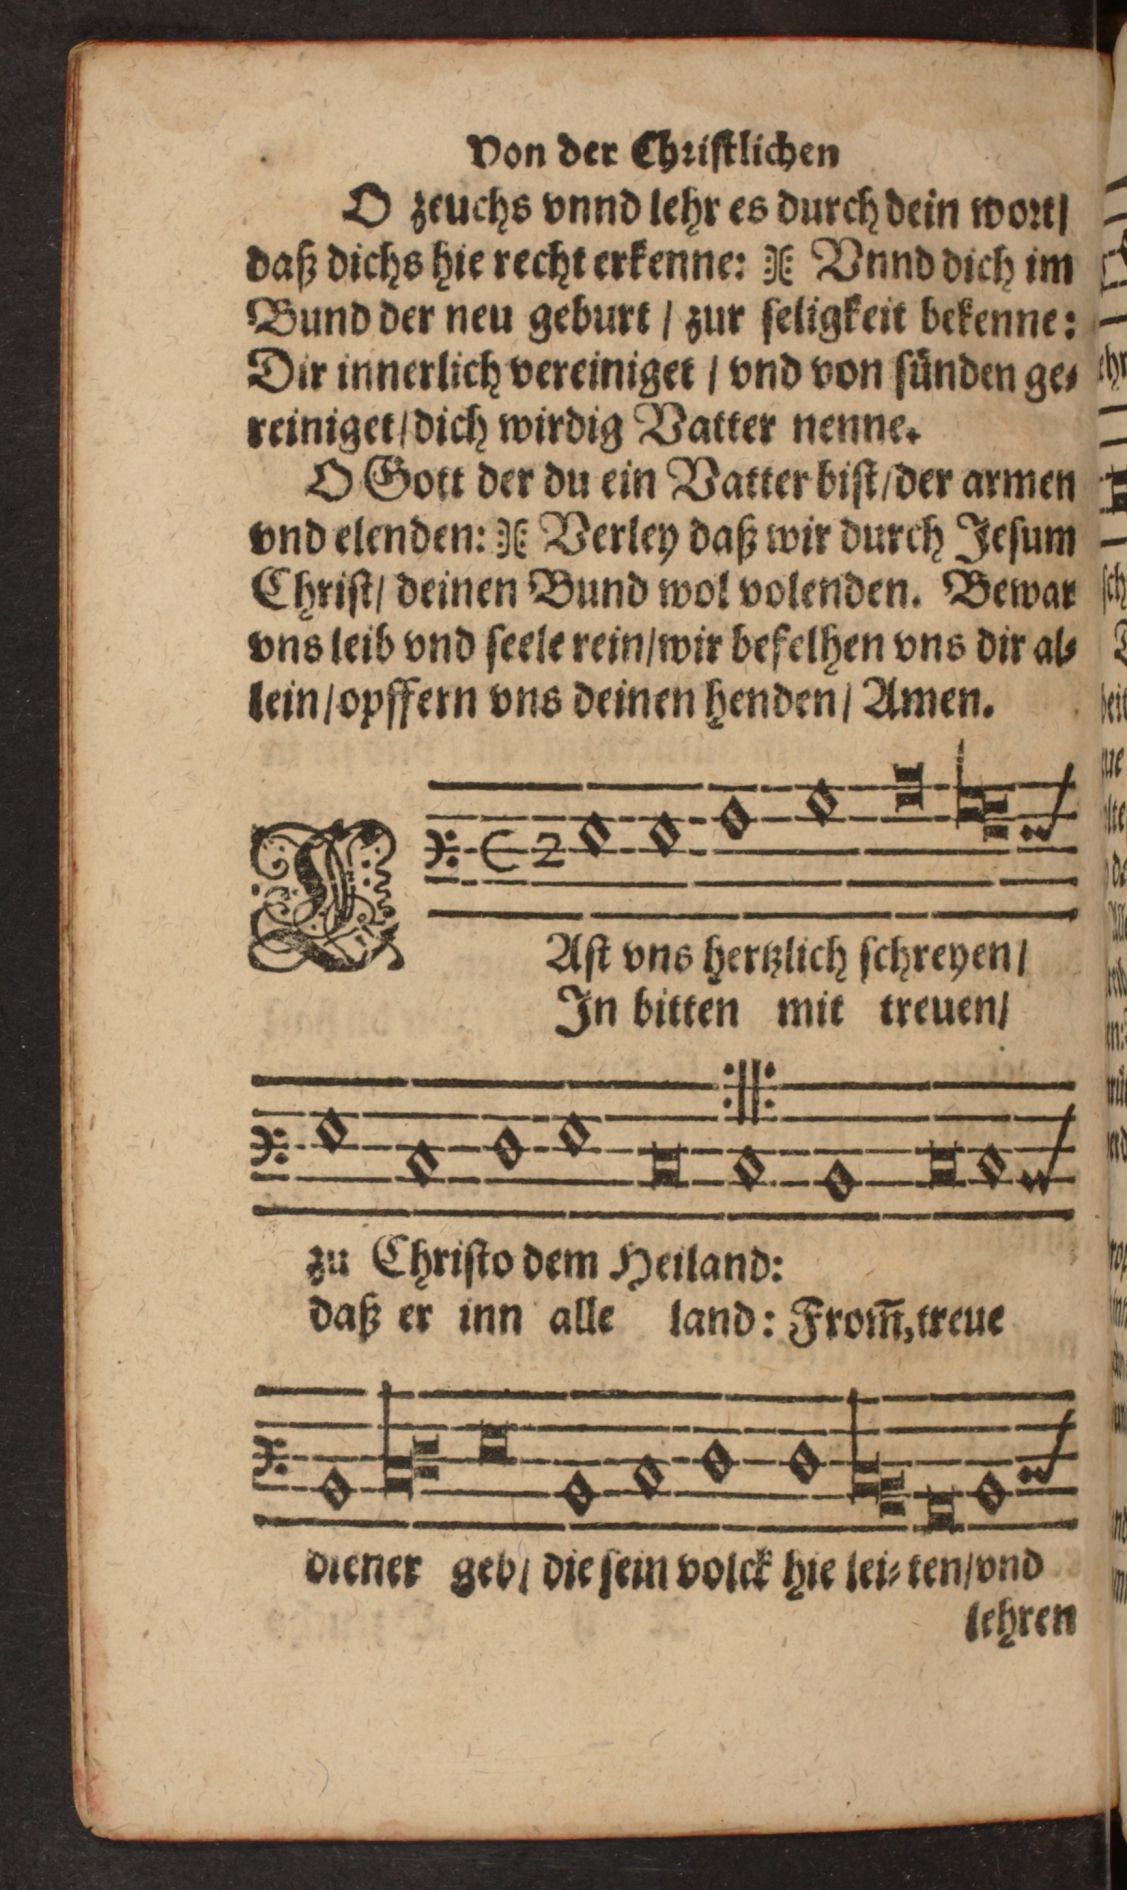 Von der Christlichen
O zeuchs vnnd lehr es durch dein wort/
daß dichs hie recht erkenne: Vnnd dich im
Bund der neu geburt / zur seligkeit bekenne:
Dir innerlich vereiniget / vnd von sünden ge-
reiniget/dich wirdig Vatter nenne.
O Gott der du ein Vatter bist/der armen
vnd elenden: Verley daß wir durch Jesum
Christ/ deinen Bund wol volenden. Bewar
vns leib vnd seele rein/wir befelhen vns dir al-
lein/opffern vns deinen henden/ Amen.
L
Ast vns hertzlich schreyen/
In bitten mit treuen/
zu Christo dem Heiland:
daß er inn alle land: From̅,treue
diener geb/ die sein volck hie lei-ten/vnd
lehren